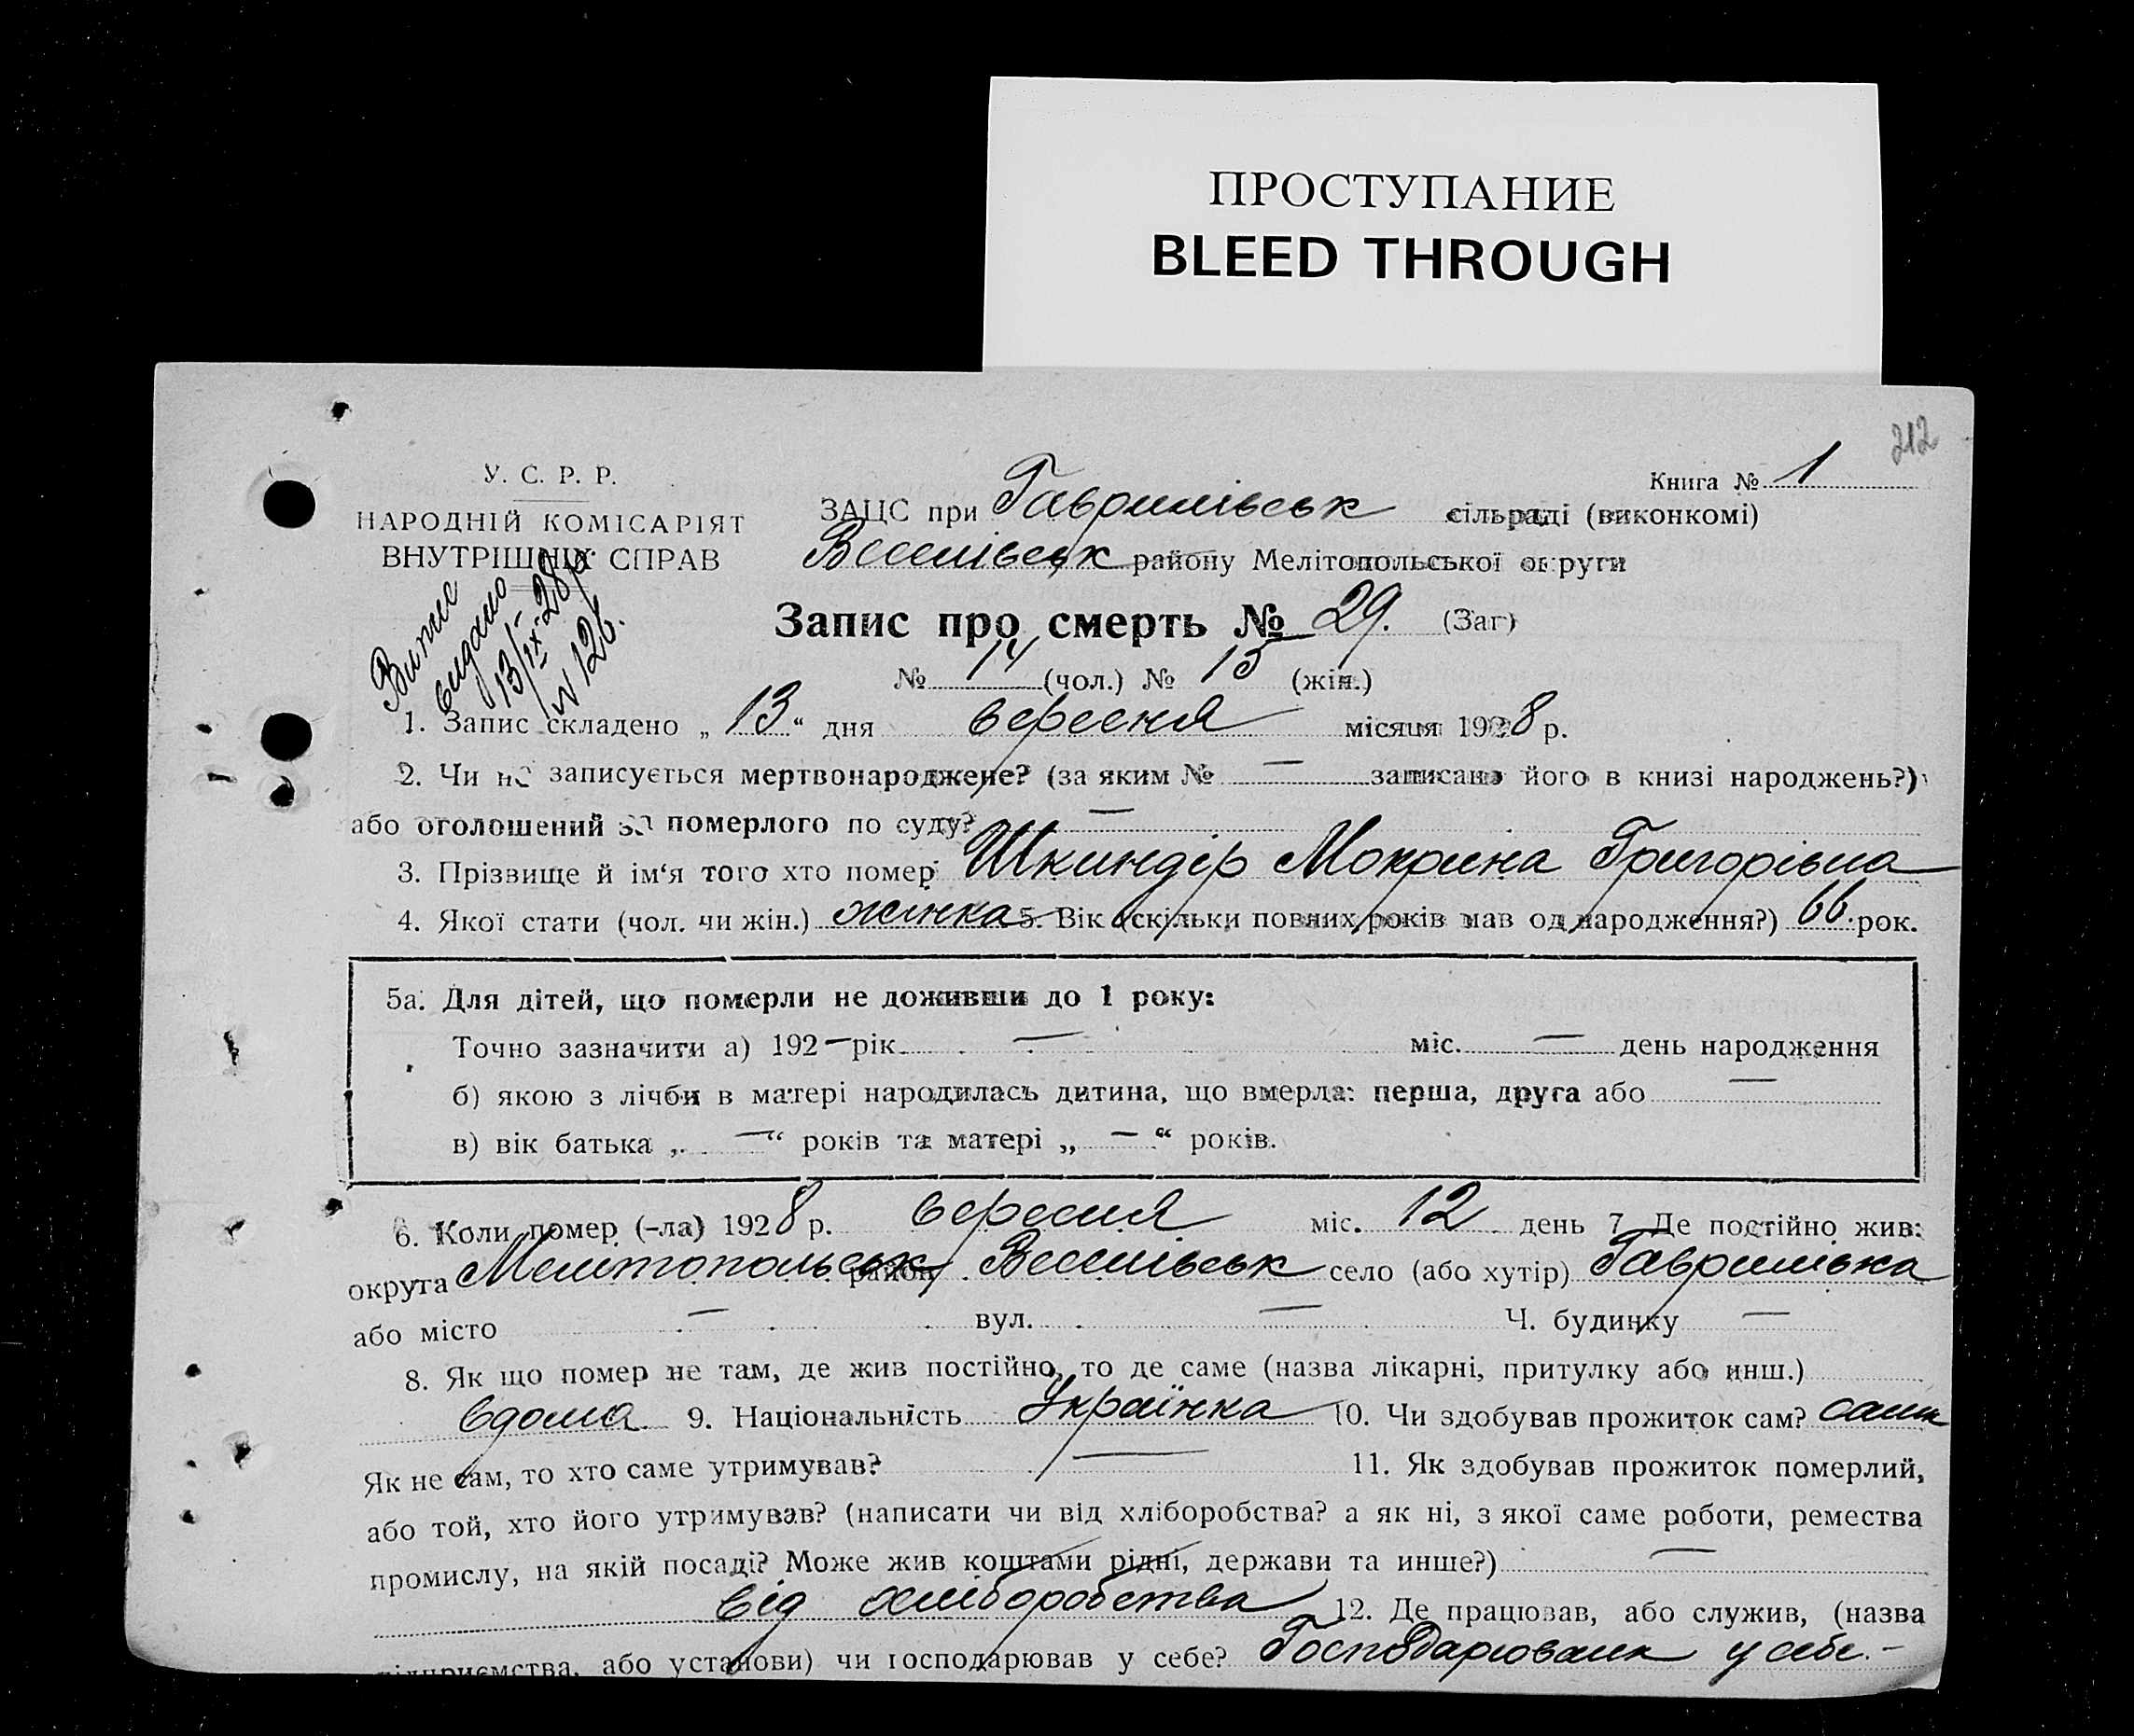 ПРОСТУПАНИЕ
BLEED THROUGH
212
У. С. Р. Р.
НАРОДНІЙ КОМІСАРІЯТ
ВНУТРІШНІХ СПРАВ
Книга № 1
ЗАЦС при Гаврилівськ сільраді (виконкомі)
Веселівськ району Мелітопольської округи
Випис
видано
13/IX-28р.
№ 126.
Запис про смерть № 29. (Заг)
№ 14 (чол.) № 15 (жін.)
1. Запис складено „ 13 “ дня вересня місяця 1928 р.
2. Чи не записується мертвонароджене? (за яким № — записано його в книзі народжень?)
або оголошений за померлого по суду? —
3. Прізвище й ім‘я того хто помер Шкиндір Мокрина Григорівна
4. Якої стати (чол. чи жін.) жінка 5. Вік (скільки повних років мав од народження?) 66. рок.
5а. Для дітей, що померли не доживши до 1 року:
Точно зазначити а) 192 — рік — міс. — день народження
б) якою з лічби в матері народилась дитина, що вмерла: перша, друга або —
в) вік батька „ — “ років та матері „ — “ років.
6. Коли помер (-ла) 1928 р. вересня міс. 12 день 7. Де постійно жив:
округа Мелітопольськ район Веселівськ село (або хутір) Гаврилівка
або місто — вул. — Ч. будинку —
8. Як що помер не там, де жив постійно, то де саме (назва лікарні, притулку або инш.)
вдома 9. Національність Українка 10. Чи здобував прожиток сам? сама
Як не сам, то хто саме утримував? — 11. Як здобував прожиток померлий,
або той, хто його утримував? (написати чи від хліборобства? а як ні, з якої саме роботи, ремества
промислу, на якій посаді? Може жив коштами рідні, держави та инше?) —
від хліборобства 12. Де працював, або служив, (назва
підприємства, або установи) чи господарював у себе? Господарювала у себе. —